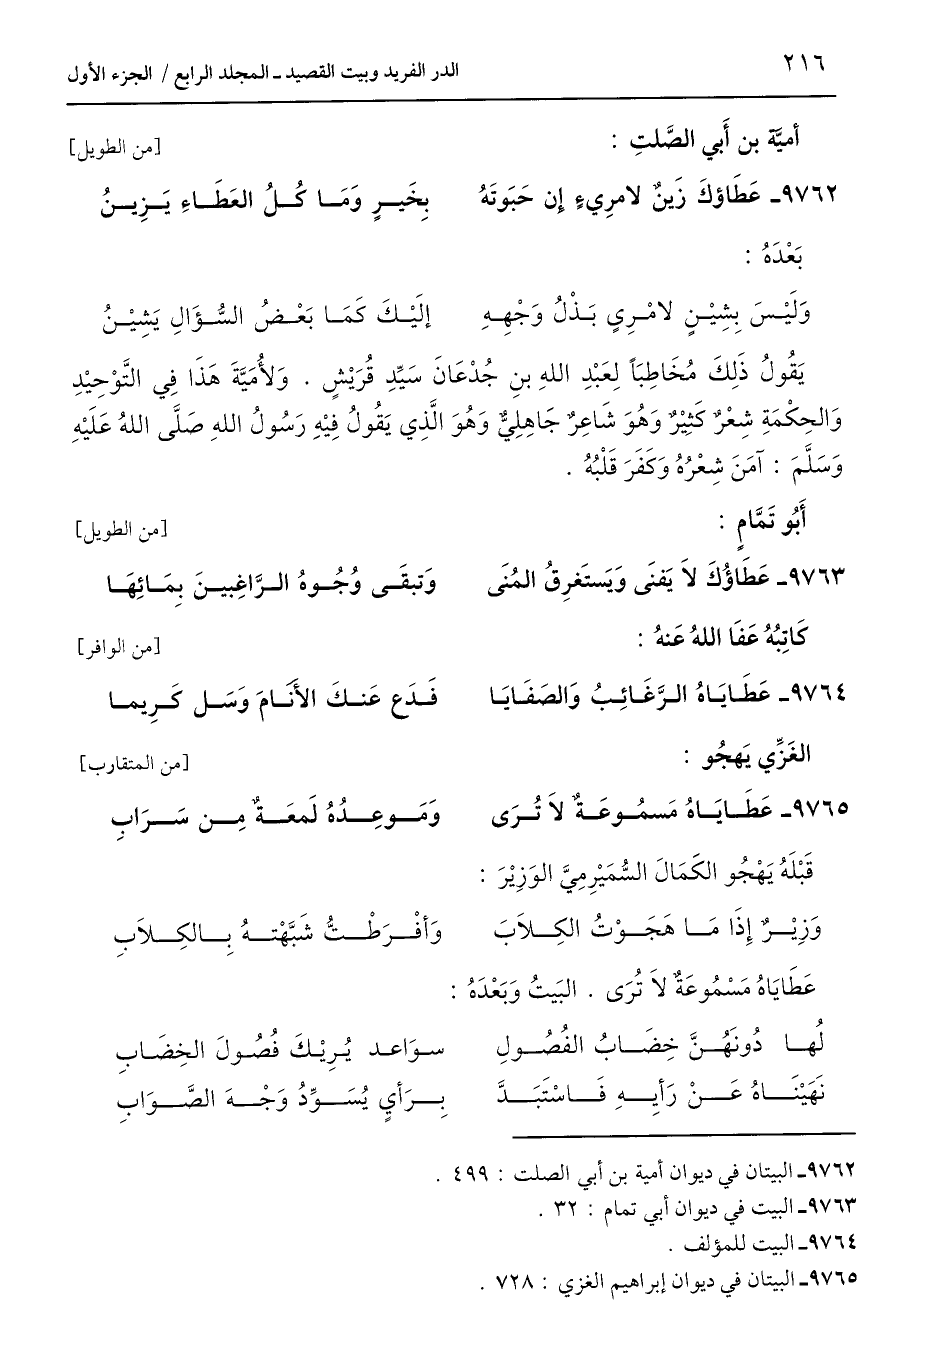 ٢١٦
الدر الفريد وبيت القصيد ـ المجلد الرابع / الجزء الأول
أميَّة بن أَبي الصَّلتِ : [من الطويل]
٩٧٦٢ـ عَطَاؤكَ زَينٌ لامرِيءٍ إن حَبَوتَهُ بِخَيرٍ وَمَا كُلُ العَطَاءِ يَزِينُ
بَعْدَهُ :
وَلَيْسَ بِشَيْنٍ لامْرِي بَذْلُ وَجْهِهِ إلَيْكَ كَمَا بَعْضُ السُّؤَالِ يَشِيْنُ
يَقُولُ ذَلِكَ مُخَاطِبَاً لِعَبْدِ اللهِ بن جُدْعَانَ سَيِّدِ قُرَيْشٍ . وَلأُمَيَّةَ هَذَا فِي التَّوْحِيْدِ
وَالحِكْمَةِ شِعْرٌ كَثِيْرٌ وَهُوَ شَاعِرٌ جَاهِليٌّ وَهُوَ الَّذِي يَقُولُ فِيْهِ رَسُولُ اللهِ صَلَّى اللهُ عَلَيْهِ
وَسَلَّمَ : آمَنَ شِعْرُهُ وَكَفَرَ قَلْبُهُ .
أَبُو تَمَّامٍ : [من الطويل]
٩٧٦٣ـ عَطَاؤُكَ لاَ يَفنَى وَيَستَغرِقُ المُنَى وَتَبقَى وُجُوهُ الرَّاغِبينَ بِمَائِهَا
كَاتِبُهُ عَفَا اللهُ عَنهُ : [من الوافر]
٩٧٦٤ـ عَطَايَاهُ الرَّغَائِبُ وَالصَفَايَا فَدَع عَنكَ الأَنَامَ وَسَل كَرِيما
الغَزِّي يَهجُو : [من المتقارب]
٩٧٦٥ـ عَطَايَاهُ مَسمُوعَةٌ لاَ تُرَى وَمَوعِدُهُ لَمعَةٌ مِن سَرَابِ
قَبْلَهُ يَهْجُو الكَمَالَ السُّمَيْرِمِيَّ الوَزِيْرَ :
وَزِيْرٌ إذَا مَا هَجَوْتُ الكِلاَبَ وَأفْرَطْتُ شَبَّهْتهُ بِالكِلاَبِ
عَطَايَاهُ مَسْمُوعَةٌ لاَ تُرَى . البَيتُ وَبَعْدَهُ :
لُها دُونَهُنَّ خِضَابُ الفُصُولِ سوَاعد يُرِيْكَ فُصُولَ الخِضَابِ
نَهَيْنَاهُ عَنْ رَأيِهِ فَاسْتَبَدَّ بِرَأيٍ يُسَوِّدُ وَجْهَ الصَّوَابِ
٩٧٦٢ـ البيتان في ديوان أمية بن أبي الصلت : ٤٩٩ .
٩٧٦٣ـ البيت في ديوان أبي تمام : ٣٢ .
٩٧٦٤ـ البيت للمؤلف .
٩٧٦٥ـ البيتان في ديوان إبراهيم الغزي : ٧٢٨ .